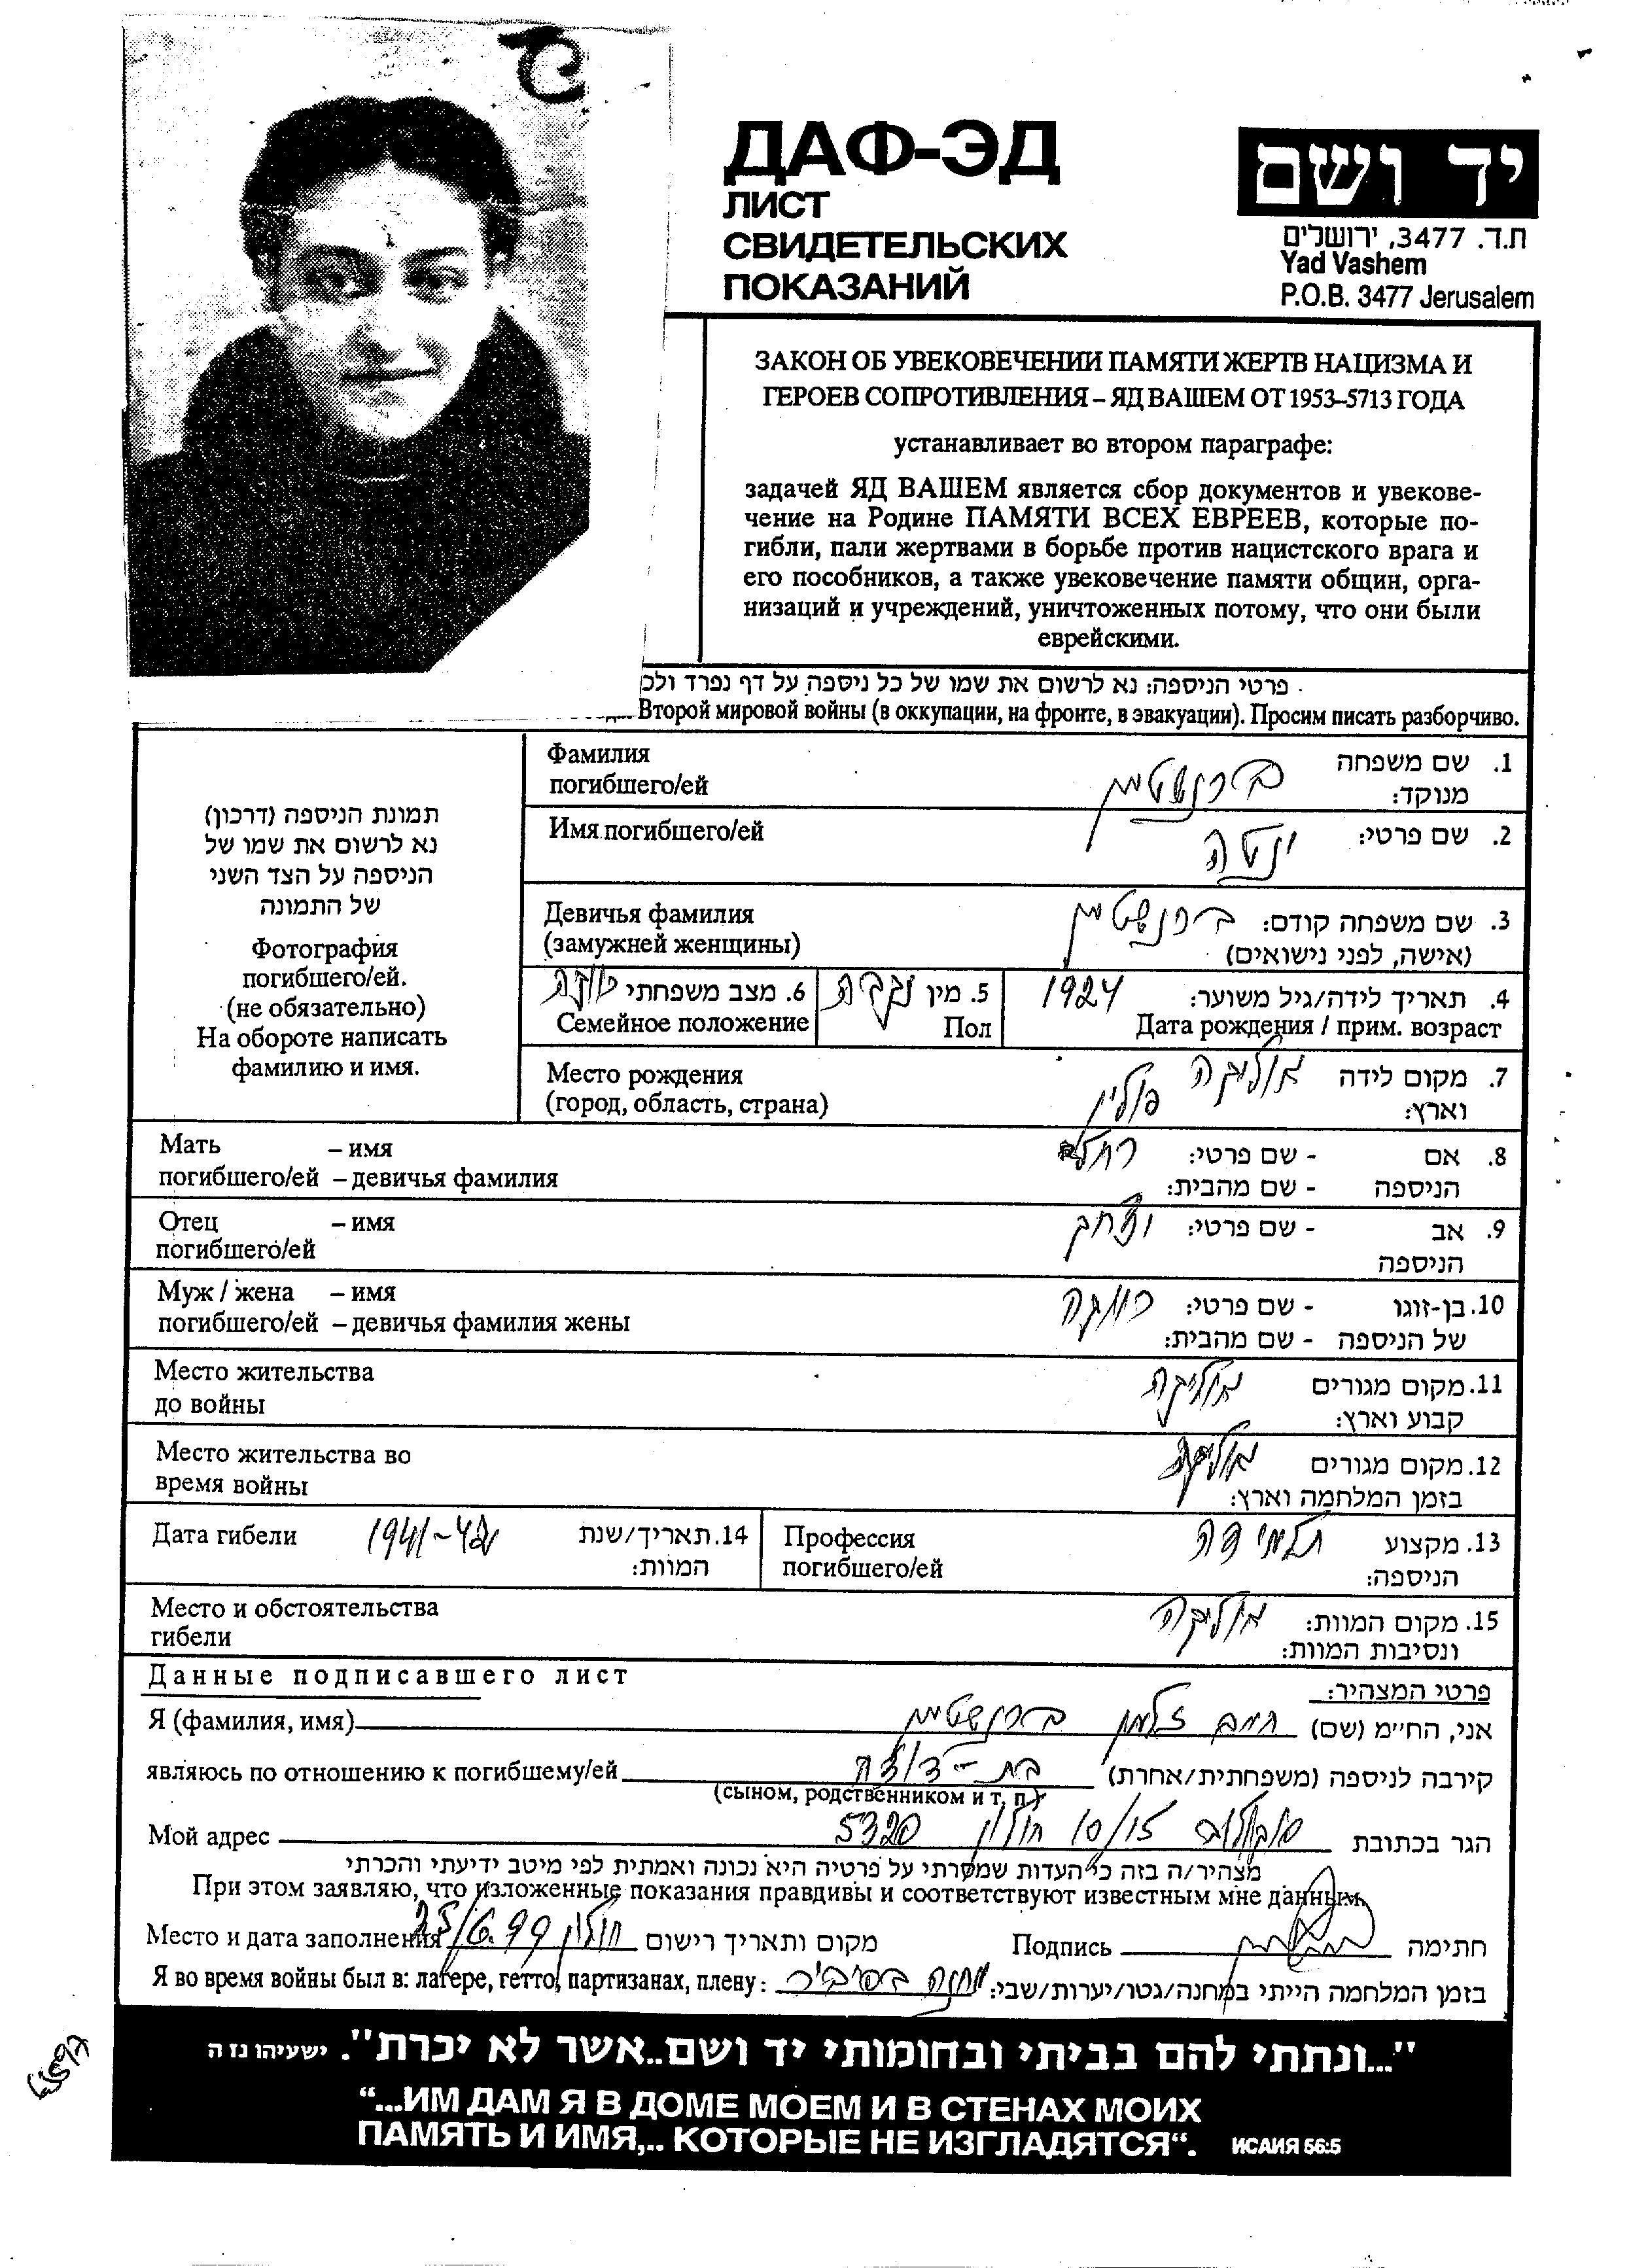 ДАФ-ЭД
ЛИСТ
СВИДЕТЕЛЬСКИХ
ПОКАЗАНИЙ
יד ושם
ת.ד. 3477, ירושלים
Yad Vashem
P.O.B. 3477 Jerusalem
ЗАКОН ОБ УВЕКОВЕЧЕНИИ ПАМЯТИ ЖЕРТВ НАЦИЗМА И
ГЕРОЕВ СОПРОТИВЛЕНИЯ – ЯД ВАШЕМ ОТ 1953–5713 ГОДА
устанавливает во втором параграфе:
задачей ЯД ВАШЕМ является сбор документов и увекове-
чение на Родине ПАМЯТИ ВСЕХ ЕВРЕЕВ, которые по-
гибли, пали жертвами в борьбе против нацистского врага и
его пособников, а также увековечение памяти общин, орга-
низаций и учреждений, уничтоженных потому, что они были
еврейскими.
פרטי הניספה: נא לרשום את שמו של כל ניספה על דף נפרד ולכ
Второй мировой войны (в оккупации, на фронте, в эвакуации). Просим писать разборчиво.
תמונת הניספה (דרכון)
נא לרשום את שמו של
הניספה על הצד השני
של התמונה
Фотография
погибшего/ей.
(не обязательно)
На обороте написать
фамилию и имя.
Фамилия
погибшего/ей
ברנשטיין
1. שם משפחה
מנוקד:
Имя погибшего/ей
יטה
2. שם פרטי:
Девичья фамилия
(замужней женщины)
ברנשטיין
3. שם משפחה קודם:
(אישה, לפני נישואים)
6. מצב משפחתי רווקה
Семейное положение
5. מין נקבה
Пол
4. תאריך לידה/גיל משוער: 1924
Дата рождения / прим. возраст
Место рождения
(город, область, страна)
אוליקה
פולין
7. מקום לידה
וארץ:
Мать – имя
погибшего/ей – девичья фамилия
8. אם - שם פרטי: רחל
הניספה - שם מהבית:
Отец – имя
погибшего/ей
9. אב - שם פרטי: יצחק
הניספה
Муж / жена – имя
погибшего/ей – девичья фамилия жены
10. בן-זוגו - שם פרטי: רווקה
של הניספה - שם מהבית:
Место жительства
до войны
11. מקום מגורים אוליקה
קבוע וארץ:
Место жительства во
время войны
12. מקום מגורים אוליקה
בזמן המלחמה וארץ:
Дата гибели
1941-42
14. תאריך/שנת
המוות:
Профессия
погибшего/ей
13. מקצוע תלמידה
הניספה:
Место и обстоятельства
гибели
15. מקום המוות: אוליקה
ונסיבות המוות:
Данные подписавшего лист
פרטי המצהיר:
Я (фамилия, имя)
אני, החיימ (שם) חיים זלמן ברנשטיין
являюсь по отношению к погибшему/ей
קירבה לניספה (משפחתית/אחרת) בת-דודה
(сыном, родственником и т. п.)
Мой адрес
הגר בכתובת סוקולוב 10/15 חולון 5320
מצהיר/ה בזה כי העדות שמסרתי על פרטיה היא נכונה ואמתית לפי מיטב ידיעתי והכרתי
При этом заявляю, что изложенные показания правдивы и соответствуют известным мне данным.
Место и дата заполнения
מקום ותאריך רישום חולון 25/6.99
Подпись
חתימה
Я во время войны был в: лагере, гетто, партизанах, плену:
בזמן המלחמה הייתי במחנה/גטו/יערות/שבי: מחנה בסיביר
"...ונתתי להם בביתי ובחומותי יד ושם..אשר לא יכרת". ישעיהו נז ה
“...ИМ ДАМ Я В ДОМЕ МОЕМ И В СТЕНАХ МОИХ
ПАМЯТЬ И ИМЯ,.. КОТОРЫЕ НЕ ИЗГЛАДЯТСЯ“. ИСАИЯ 56:5